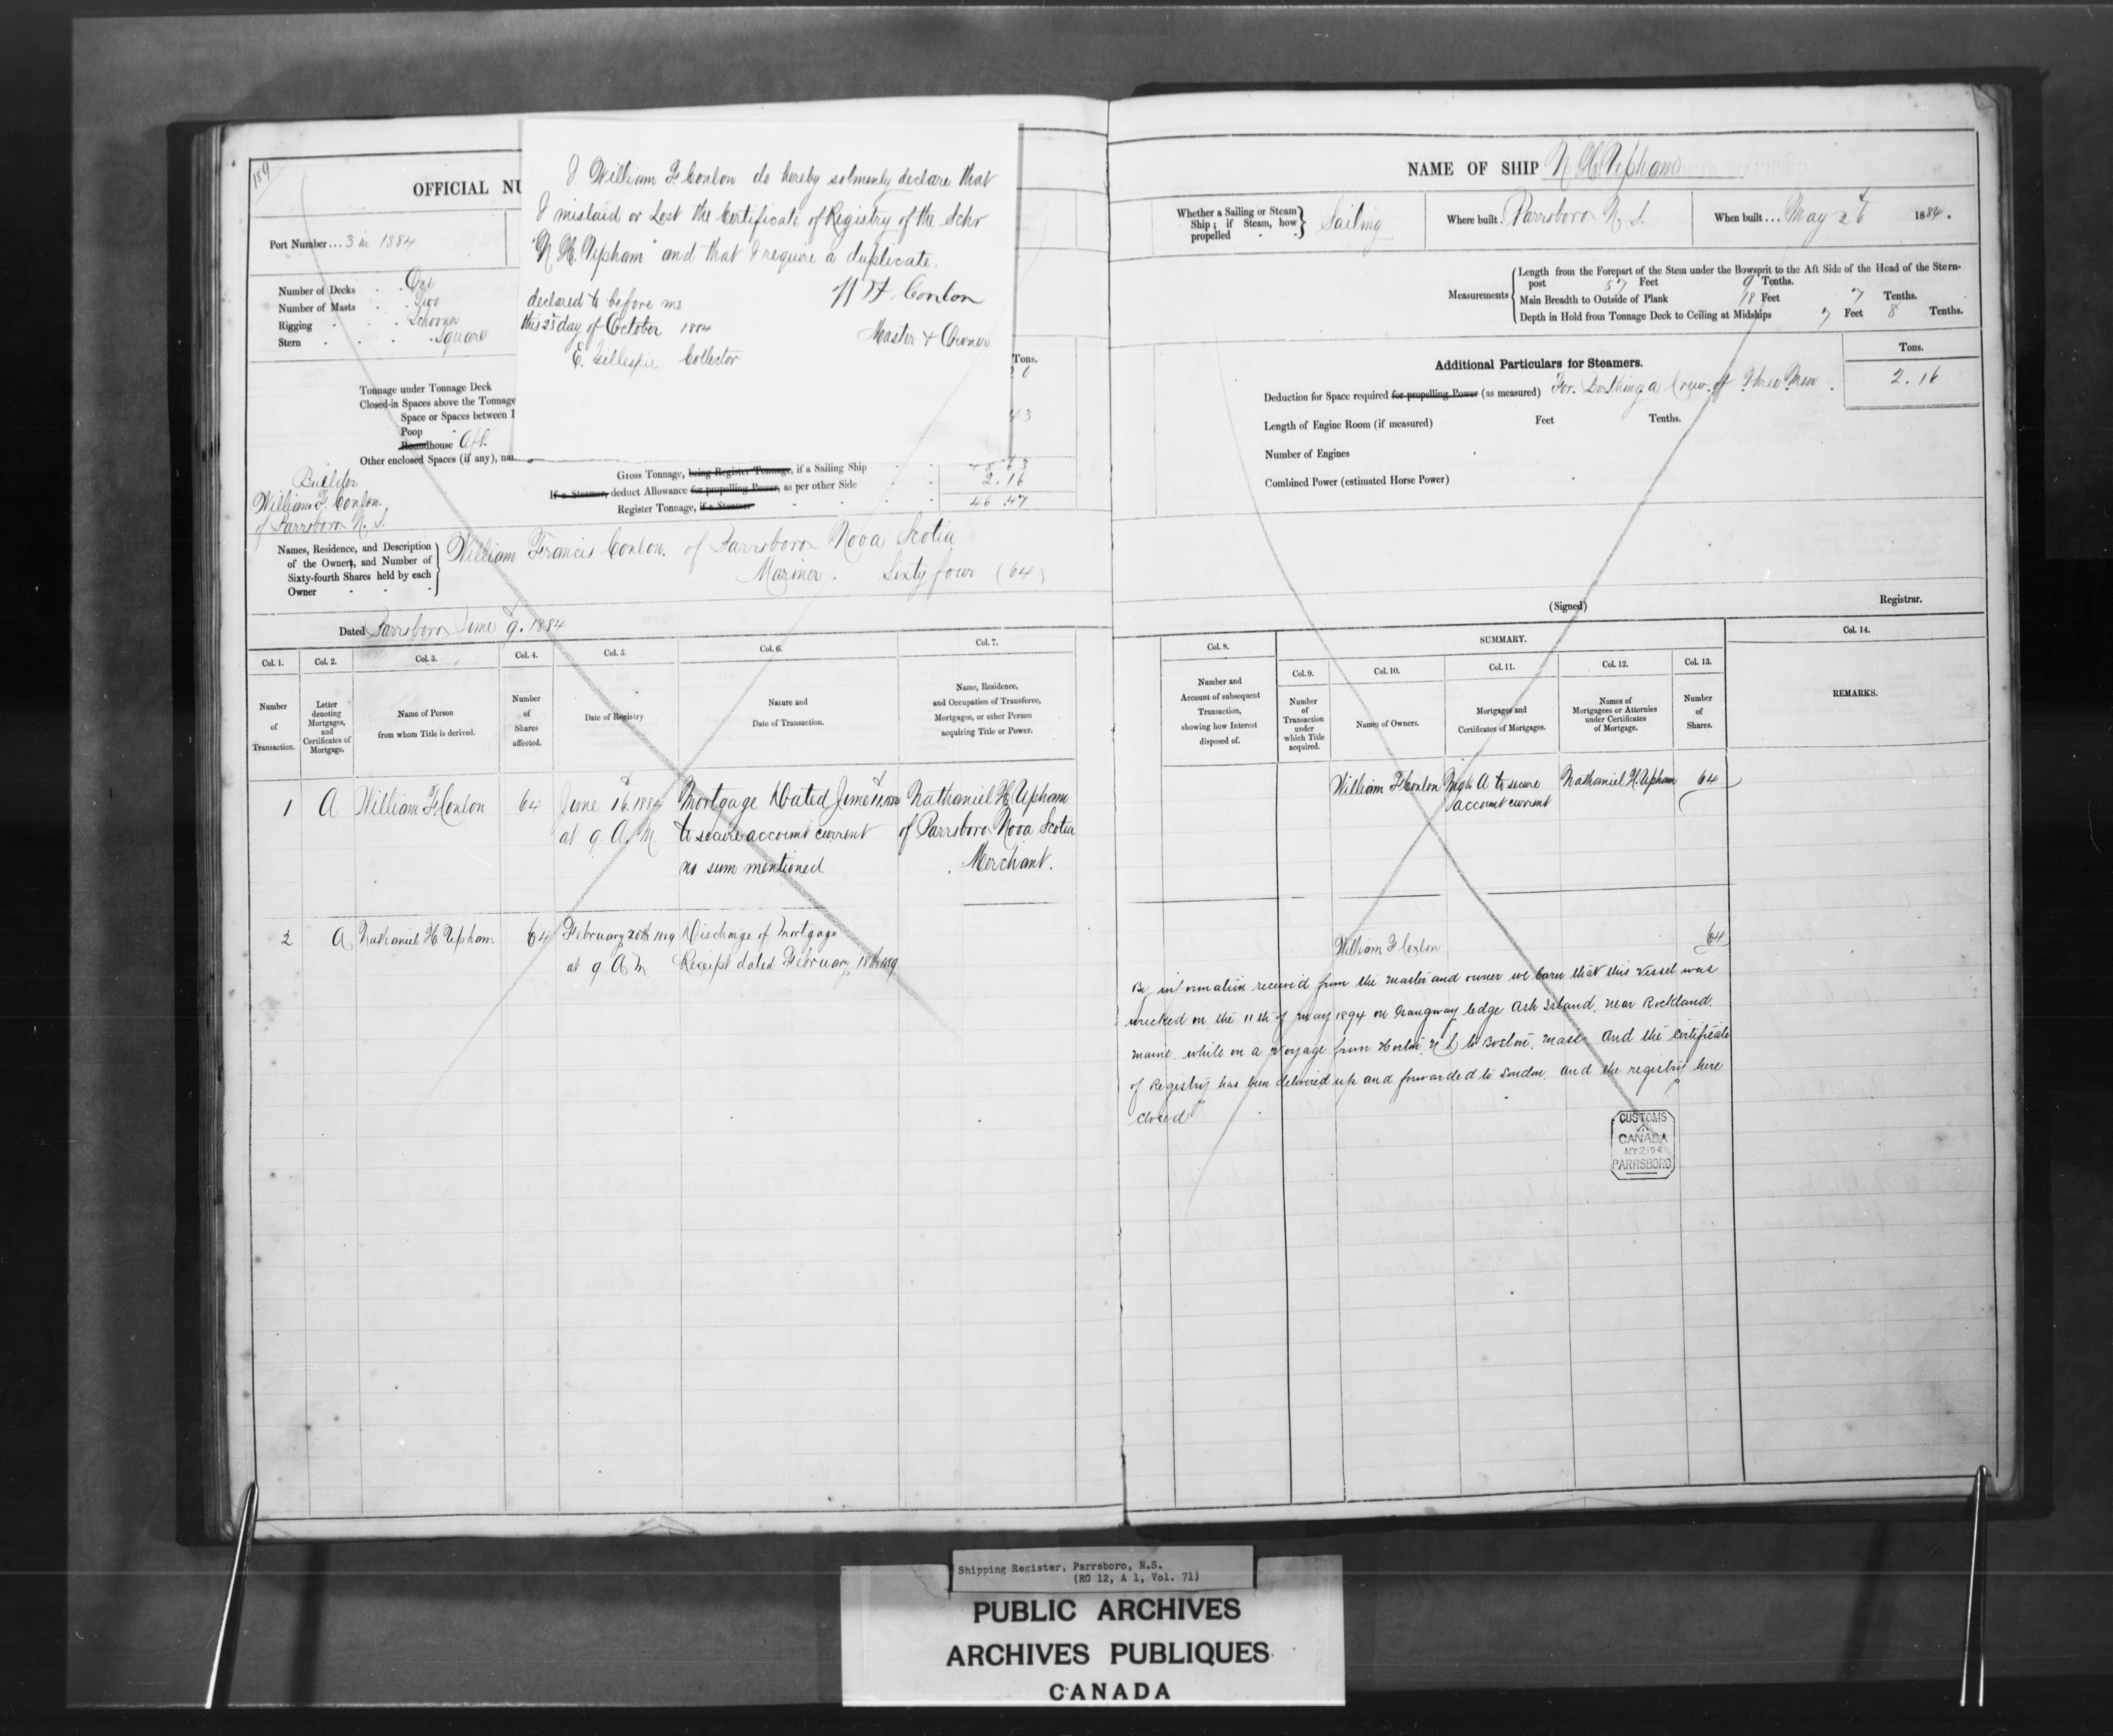 189
OFFICIAL NU
Port Number... 3 in 1884
Number of Decks One
Number of Masts Two
Rigging Schooner
Stern Square
Tonnage under Tonnage Deck
Closed-in Spaces above the Tonnage
Space or Spaces between
Poop
Roundhouse Aft.
Other enclosed Spaces (if any), na
I William F. Conlon do hereby solmenly declare that
I mislaid or Lost the Certificate of Registry of the Schr
"N H. Upham" and that I require a duplicate.
declared to before me
this 23d day of October 1884
W F. Conlon
Master & Owner
E. Gillespie Collector
Tons.
20
43
Gross Tonnage, being Register Tonnage, if a Sailing Ship 48.63
If a Steamer, deduct Allowance for propelling Power, as per other Side 2.16
Register Tonnage, if a Steamer 46.47
Builder
William F. Conlon.
of Parrsboro N. S.
Names, Residence, and Description
of the Owners, and Number of
Sixty-fourth Shares held by each
Owner
William Francis Conlon. of Parrsboro Nova Scotia
Mariner. Sixty four (64)
Dated Parrsboro June 9. 1884
Col. 1. Col. 2. Col. 3. Col. 4. Col. 5. Col. 6. Col. 7.
Number
of
Transaction.
Letter
denoting
Mortgages,
and
Certificates of
Mortgage.
Name of Person
from whom Title is derived.
Number
of
Shares
affected.
Date of Registry.
Nature and
Date of Transaction.
Name, Residence,
and Occupation of Transferee,
Mortgagee, or other Person
acquiring Title or Power.
1 A William F. Conlon 64 June 16. 1884 Mortgage Dated June Nathaniel H Upham
at 9 A. M. to secure account current of Parrsboro Nova Scotia
no sum mentioned Merchant.
2 A Nathaniel H Upham 64 February 20th 1889 Discharge of Mortgage
at 9 A M Receipt dated February 18th 1889
NAME OF SHIP N. H. Upham
Whether a Sailing or Steam
Ship; if Steam, how
propelled
Sailing
Where built. Parrsboro N. S.
When built... May 26 1884.
Measurements
Length from the Forepart of the Stem under the Bowsprit to the Aft Side of the Head of the Stern-
post 57 Feet 9 Tenths.
Main Breadth to Outside of Plank 18 Feet 7 Tenths.
Depth in Hold from Tonnage Deck to Ceiling at Midships 7 Feet 8 Tenths.
Additional Particulars for Steamers.
Tons.
Deduction for Space required for propelling Power (as measured) For Berthing a Crew of Three Men. 2.16
Length of Engine Room (if measured) Feet Tenths.
Number of Engines
Combined Power (estimated Horse Power)
(Signed) Registrar.
Col. 8. SUMMARY. Col. 14.
Col. 9. Col. 10. Col. 11. Col. 12. Col. 13.
Number and
Account of subsequent
Transaction,
showing how Interest
disposed of.
Number
of
Transaction
under
which Title
acquired.
Names of Owners.
Mortgages and
Certificates of Mortgages.
Names of
Mortgagees or Attornies
under Certificates
of Mortgage.
Number
of
Shares.
REMARKS.
William F. Conlon Mtge A to secure Nathaniel H. Upham 64
account current
William F Conlon 64
By information received from the master and owner we learn that this vessel was
wrecked on the 11th of may 1894 on Gangway ledge Ash Island, near Rockland.
maine. while on a voyage from Horton, N S to Boston, mass and the Certificate
of Registry has been delivered up and forwarded to London. and the registry here
closed
CUSTOMS
CANADA
MY 21 94
PARRSBORO
Shipping Register, Parrsboro, N.S.
(RG 12, A 1, Vol. 71)
PUBLIC ARCHIVES
ARCHIVES PUBLIQUES
CANADA